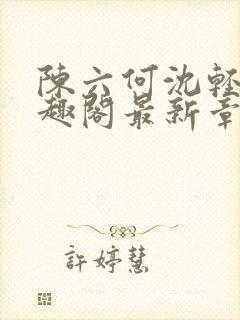 陳六何沈輕
趣閣最新章
許婷慧